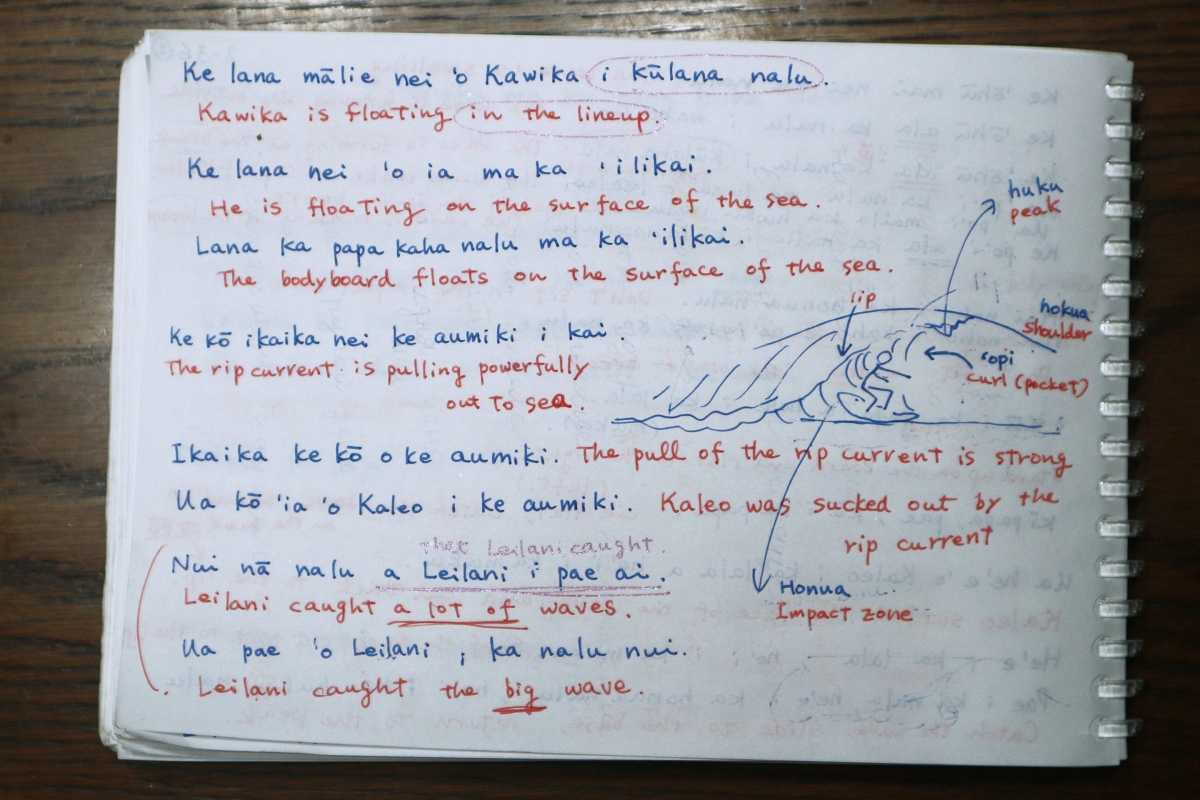 Ke lana mālie nei ʻo Kawika i kūlana nalu.
Kawika is floating in the lineup.
Ke lana nei ʻo ia ma ka ʻilikai.
He is floating on the surface of the sea.
Lana ka papa kaha nalu ma ka ʻilikai.
The bodyboard floats on the surface of the sea.
huku
peak
lip
hokua
shoulder
ʻopi
curl (pocket)
Ke kō ikaika nei ke aumiki i kai.
The rip current is pulling powerfully
out to sea.
Ikaika ke kō o ke aumiki. The pull of the rip current is strong
Ua kō ʻia ʻo Kaleo i ke aumiki. Kaleo was sucked out by the
rip current
that Leilani caught.
Nui nā nalu a Leilani i pae ai.
Leilani caught a lot of waves.
Honua
Impact zone
Ua pae ʻo Leilani i ka nalu nui.
Leilani caught the big wave.